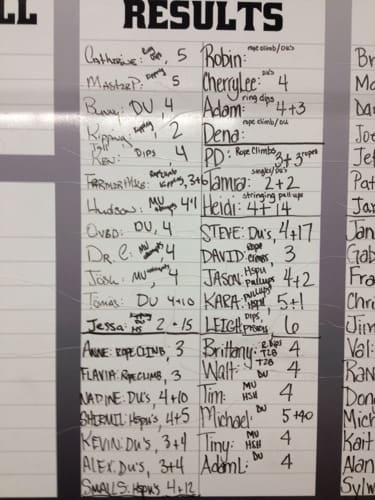 LL
RESULTS
Catherine: Ring Dips, 5
Master P: Kipping 5
Bunny: DU, 4
Kipping 2
Tall Ken: Dips, 4
Farmer Mike: Kipping, 3+6
Hudson: MU attempts 4+1
OVBD: DU, 4
Dr. C: MU attempts, 4
Josh: MU attempts, 4
Tomas: DU 4+10
Jessa: Kipping DU HS 2+15
Anne: Rope Climb, 3
Flavia: Rope Climb, 3
Nadine: DU's, 4+10
Sherwil: HSPU's, 4+5
Kevin: DU's, 3+4
Alex: DU's, 3+4
Smalls: HSPU's 4+12
Robin: rope climb/DU's
Cherrylee: DU's 4
Adam: ring dips 4+3
Dena: rope climb/DU
PD: Rope Climbs 3+3 ropes
Tamra: singles/DU's 2+2
Heidi: stringing pull ups 4+14
Steve: DU's, 4+17
David: rope climbs, 3
Jason: HSPU pullups 4+2
Kara: pullups HSPU 5+1
Leigh: Dips, 6
Brittany: R. Dips T2B 4
Walt: T2B DU 4
Tim: MU HSH 4
Michael: DU 5+40
Tiny: MU HSH 4
Adam L: DU 4
Br
Ma
Da
Joe
Jef
Pat
Jar
Jan
Gab
Fra
Chri
Jim
Val:
Ran
Don
Mich
Kait
Alan
Sylw